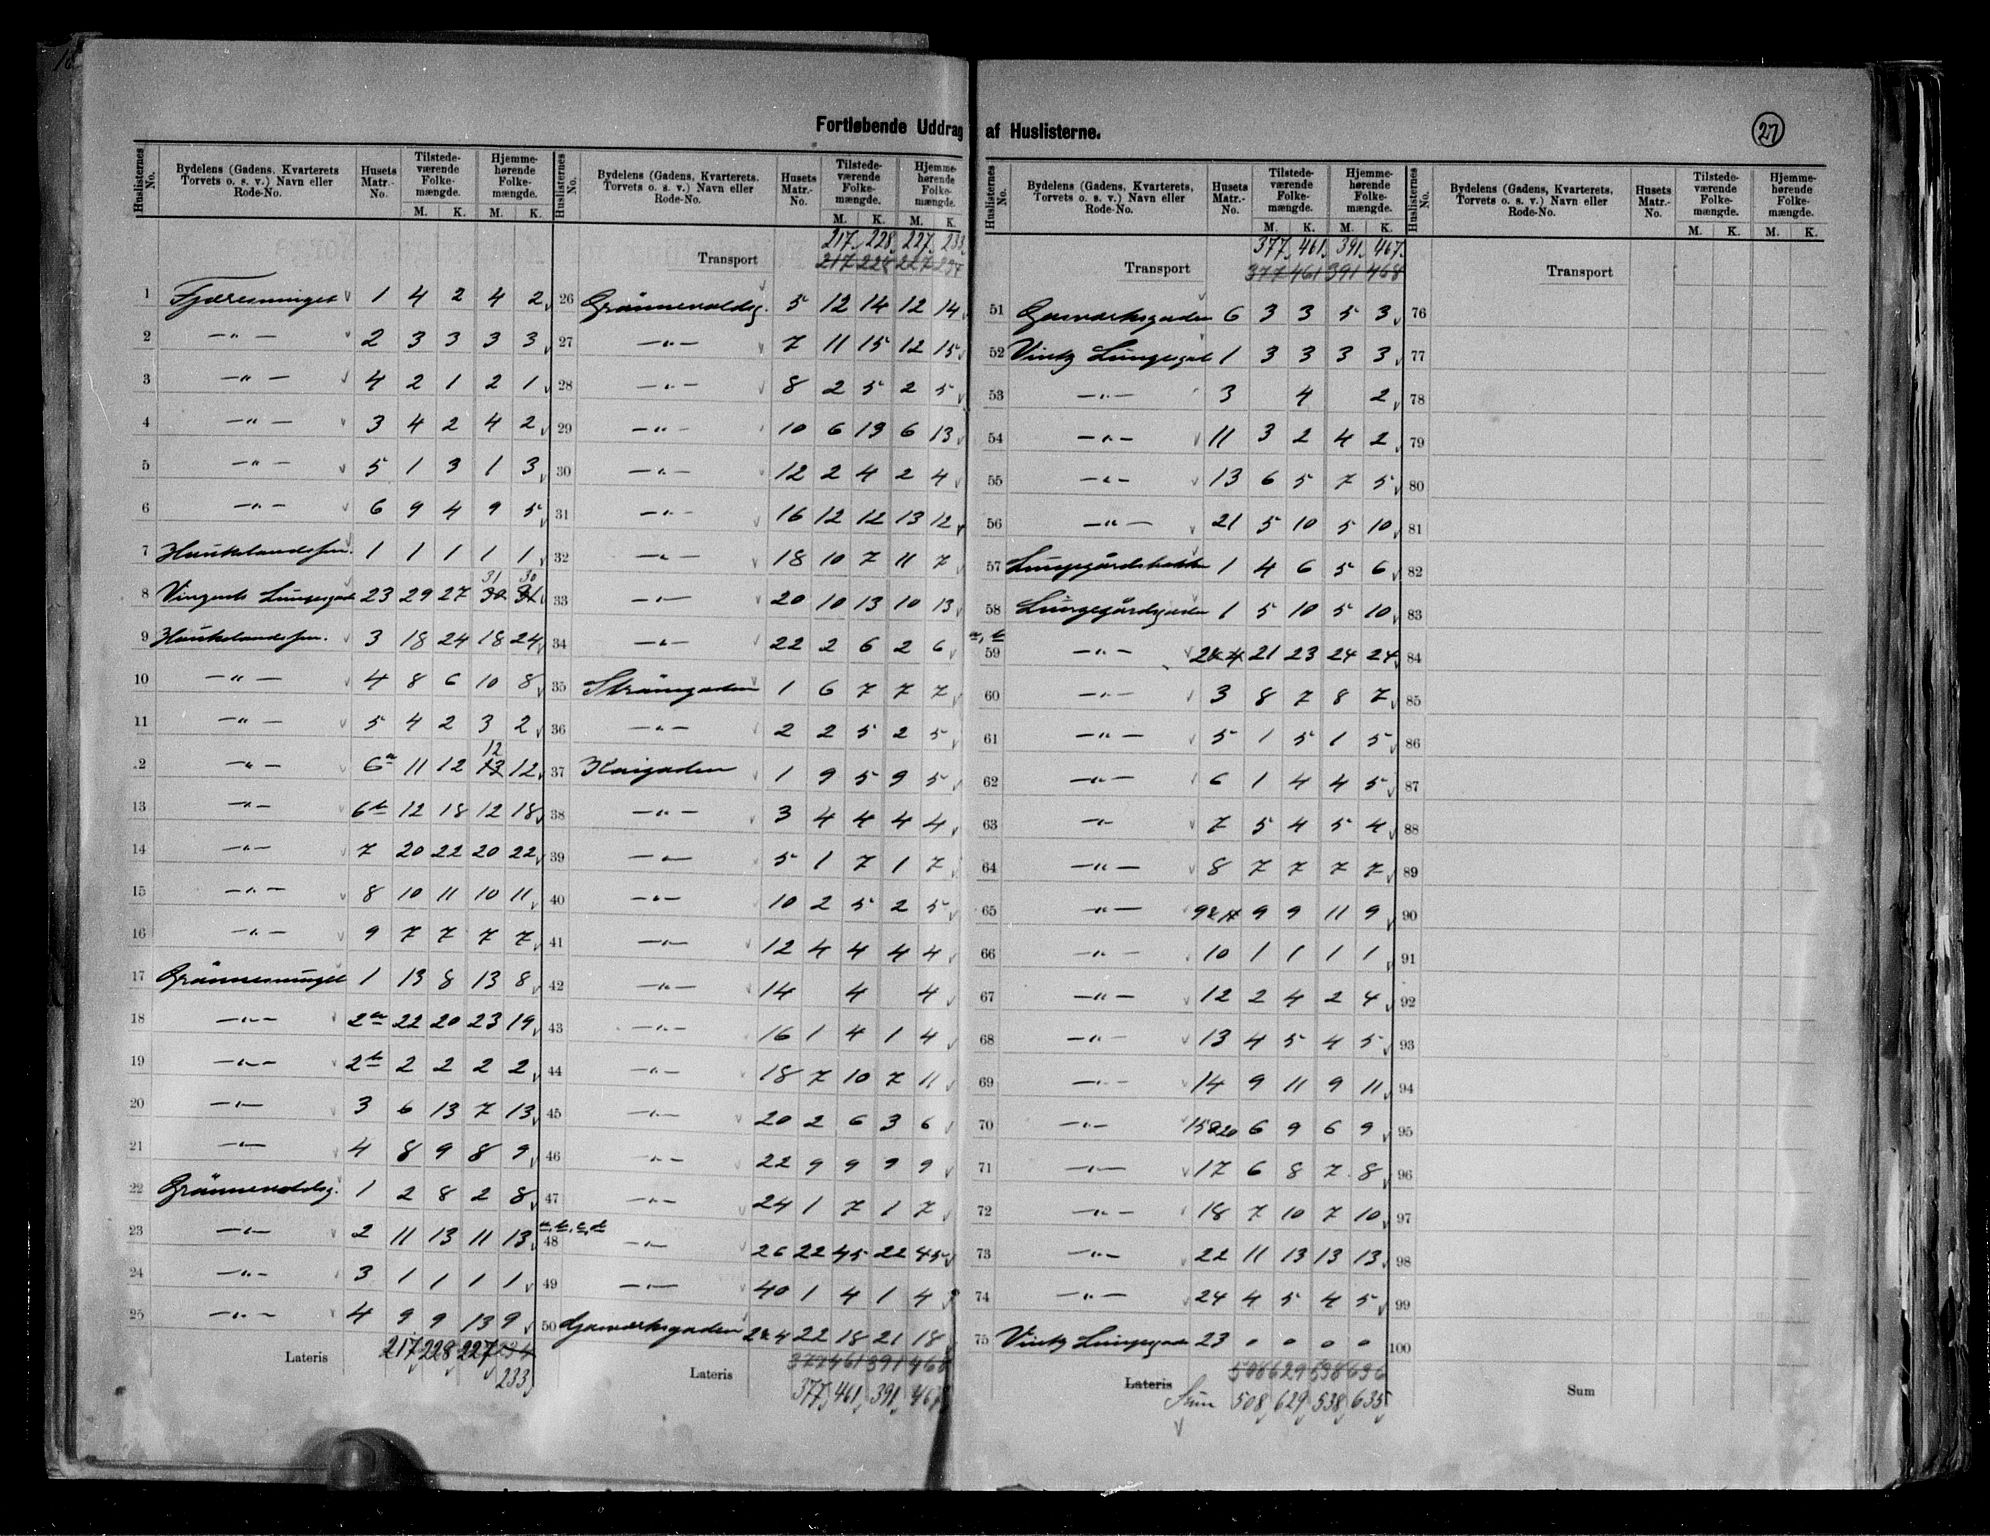 Fortløbende Uddrag af Huslisterne.
27
Huslisternes No. Bydelens (Gadens, Kvarterets Torvets o. s. v.) Navn eller Rode-No. Husets Matr.-No. Tilstedeværende Folkemængde. M. K. Hjemmehørende Folkemængde. M. K.
1 Fjæresmuget 1 4 2 4 2
2 —"— 2 3 3 3 3
3 —"— 4 2 1 2 1
4 —"— 3 4 2 4 2
5 —"— 5 1 3 1 3
6 —"— 6 9 4 9 5
7 1 1 1 1 1
8 23 29 27 31 30
9 3 18 24 18 24
10 —"— 4 8 6 10 8
11 —"— 5 4 2 3 2
12 —"— 6a 11 12 12 12
13 —"— 6b 12 18 12 18
14 —"— 7 20 22 20 22
15 —"— 8 10 11 10 11
16 —"— 9 7 7 7 7
17 Grønnesmuget 1 13 8 13 8
18 —"— 2a 22 20 23 19
19 —"— 2b 2 2 2 2
20 —"— 3 6 13 7 13
21 —"— 4 8 9 8 9
22 Grønnevoldsg. 1 2 8 2 8
23 —"— 2 11 13 11 13
24 —"— 3 1 1 1 1
25 —"— 4 9 9 13 9
Lateris 217 228 227 234
233
Huslisternes No. Bydelens (Gadens, Kvarterets, Torvets o. s. v.) Navn eller Rode-No. Husets Matr.-No. Tilstedeværende Folkemængde. M. K. Hjemmehørende Folkemængde. M. K.
217 228 227 233
Transport 217 228 227 234
26 Grønnevoldsg. 5 12 14 12 14
27 —"— 7 11 15 12 15
28 —"— 8 2 5 2 5
29 —"— 10 6 13 6 13
30 —"— 12 2 4 2 4
31 —"— 16 12 12 13 12
32 —"— 18 10 7 11 7
33 —"— 20 10 13 10 13
34 —"— 22 2 6 2 6
35 Strømgaden 1 6 7 7 7
36 —"— 2 2 5 2 5
37 Kaigaden 1 9 5 9 5
38 —"— 3 4 4 4 4
39 —"— 5 1 7 1 7
40 —"— 10 2 5 2 5
41 —"— 12 4 4 4 4
42 —"— 14 4 4
43 —"— 16 1 4 1 4
44 —"— 18 7 10 7 11
45 —"— 20 2 6 3 6
46 —"— 22 9 9 9 9
47 —"— 24 1 7 1 7
a, b, c, d
48 —"— 26 22 45 22 45
49 —"— 40 1 4 1 4
50 Gasværksgaden 2&4 22 18 21 18
Lateris 377 461 391 468
377 461 391 467
Huslisternes No. Bydelens (Gadens, Kvarterets, Torvets o. s. v.) Navn eller Rode-No. Husets Matr.-No. Tilstedeværende Folkemængde. M. K. Hjemmehørende Folkemængde. M. K.
377 461 391 467
Transport 377 461 391 468
51 Gasværksgaden 6 3 3 5 3
52 1 3 3 3 3
53 —"— 3 4 2
54 —"— 11 3 2 4 2
55 —"— 13 6 5 7 5
56 —"— 21 5 10 5 10
57 Lungegårdsbakken 1 4 6 5 6
58 Lungegårdsgaden 1 5 10 5 10
a, b
59 —"— 2&4 21 23 24 24
60 —"— 3 8 7 8 7
61 —"— 5 1 5 1 5
62 —"— 6 1 4 4 5
63 —"— 7 5 4 5 4
64 —"— 8 7 7 7 7
65 —"— 9 9 11 9
66 —"— 10 1 1 1 1
67 —"— 12 2 4 2 4
68 —"— 13 4 5 4 5
69 —"— 14 9 11 9 11
70 —"— 6 9 6 9
71 —"— 17 6 8 7 8
72 —"— 18 7 10 7 10
73 —"— 22 11 13 13 13
74 —"— 24 4 5 4 5
75 23 0 0 0 0
Lateris 508 629 538 636
Sum 508 629 538 635
Huslisternes No. Bydelens (Gadens, Kvarterets, Torvets o. s. v.) Navn eller Rode-No. Husets Matr.-No. Tilstedeværende Folkemængde. M. K. Hjemmehørende Folkemængde. M. K.
Transport
76
77
78
79
80
81
82
83
84
85
86
87
88
89
90
91
92
93
94
95
96
97
98
99
100
Sum